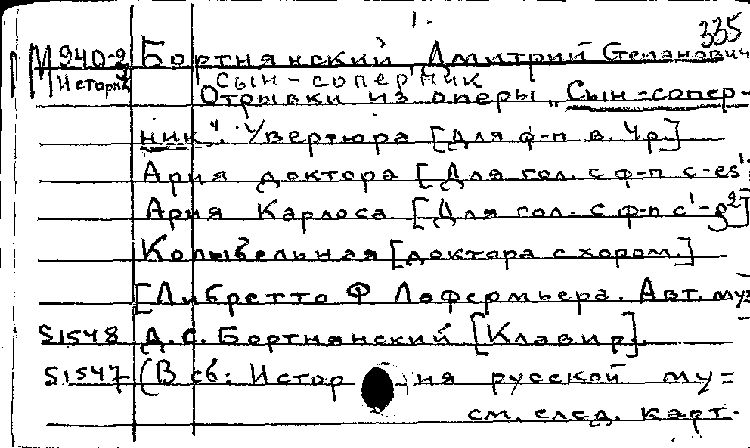 1.
335
М 940-2 Бортнянский Дмитрий Степанович
История Сын-соперник
Отрывки из оперы „Сын-сопер-
ник". Увертюра [Для ф-п в. 4р.]
Ария доктора [Для гол. с ф-п c-es¹]
Ария Карлоса [Для гол. с ф-п c¹-g²]
Колыбельная [доктора с хором.]
[Либретто Ф Лафермьера. Авт. муз
51548 Д. С. Бортнянский [Клавир].
51547 (В сб: Истор ия русской му=
см. след. карт.